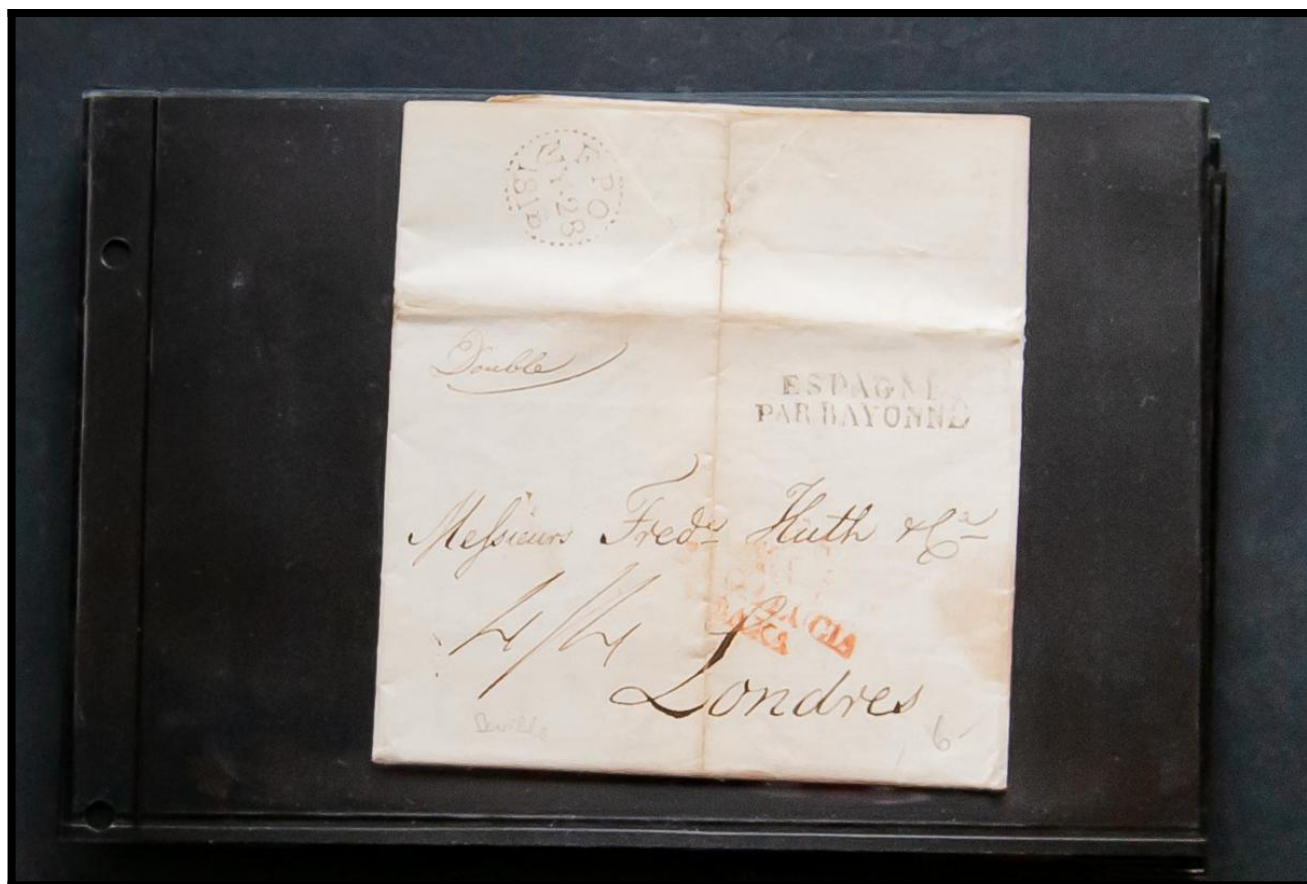 FPO
MY.28
181
Double
ESPAGNE
PAR BAYONNE
Messieurs Fredk Huth & Co
4/4
Londres
6-